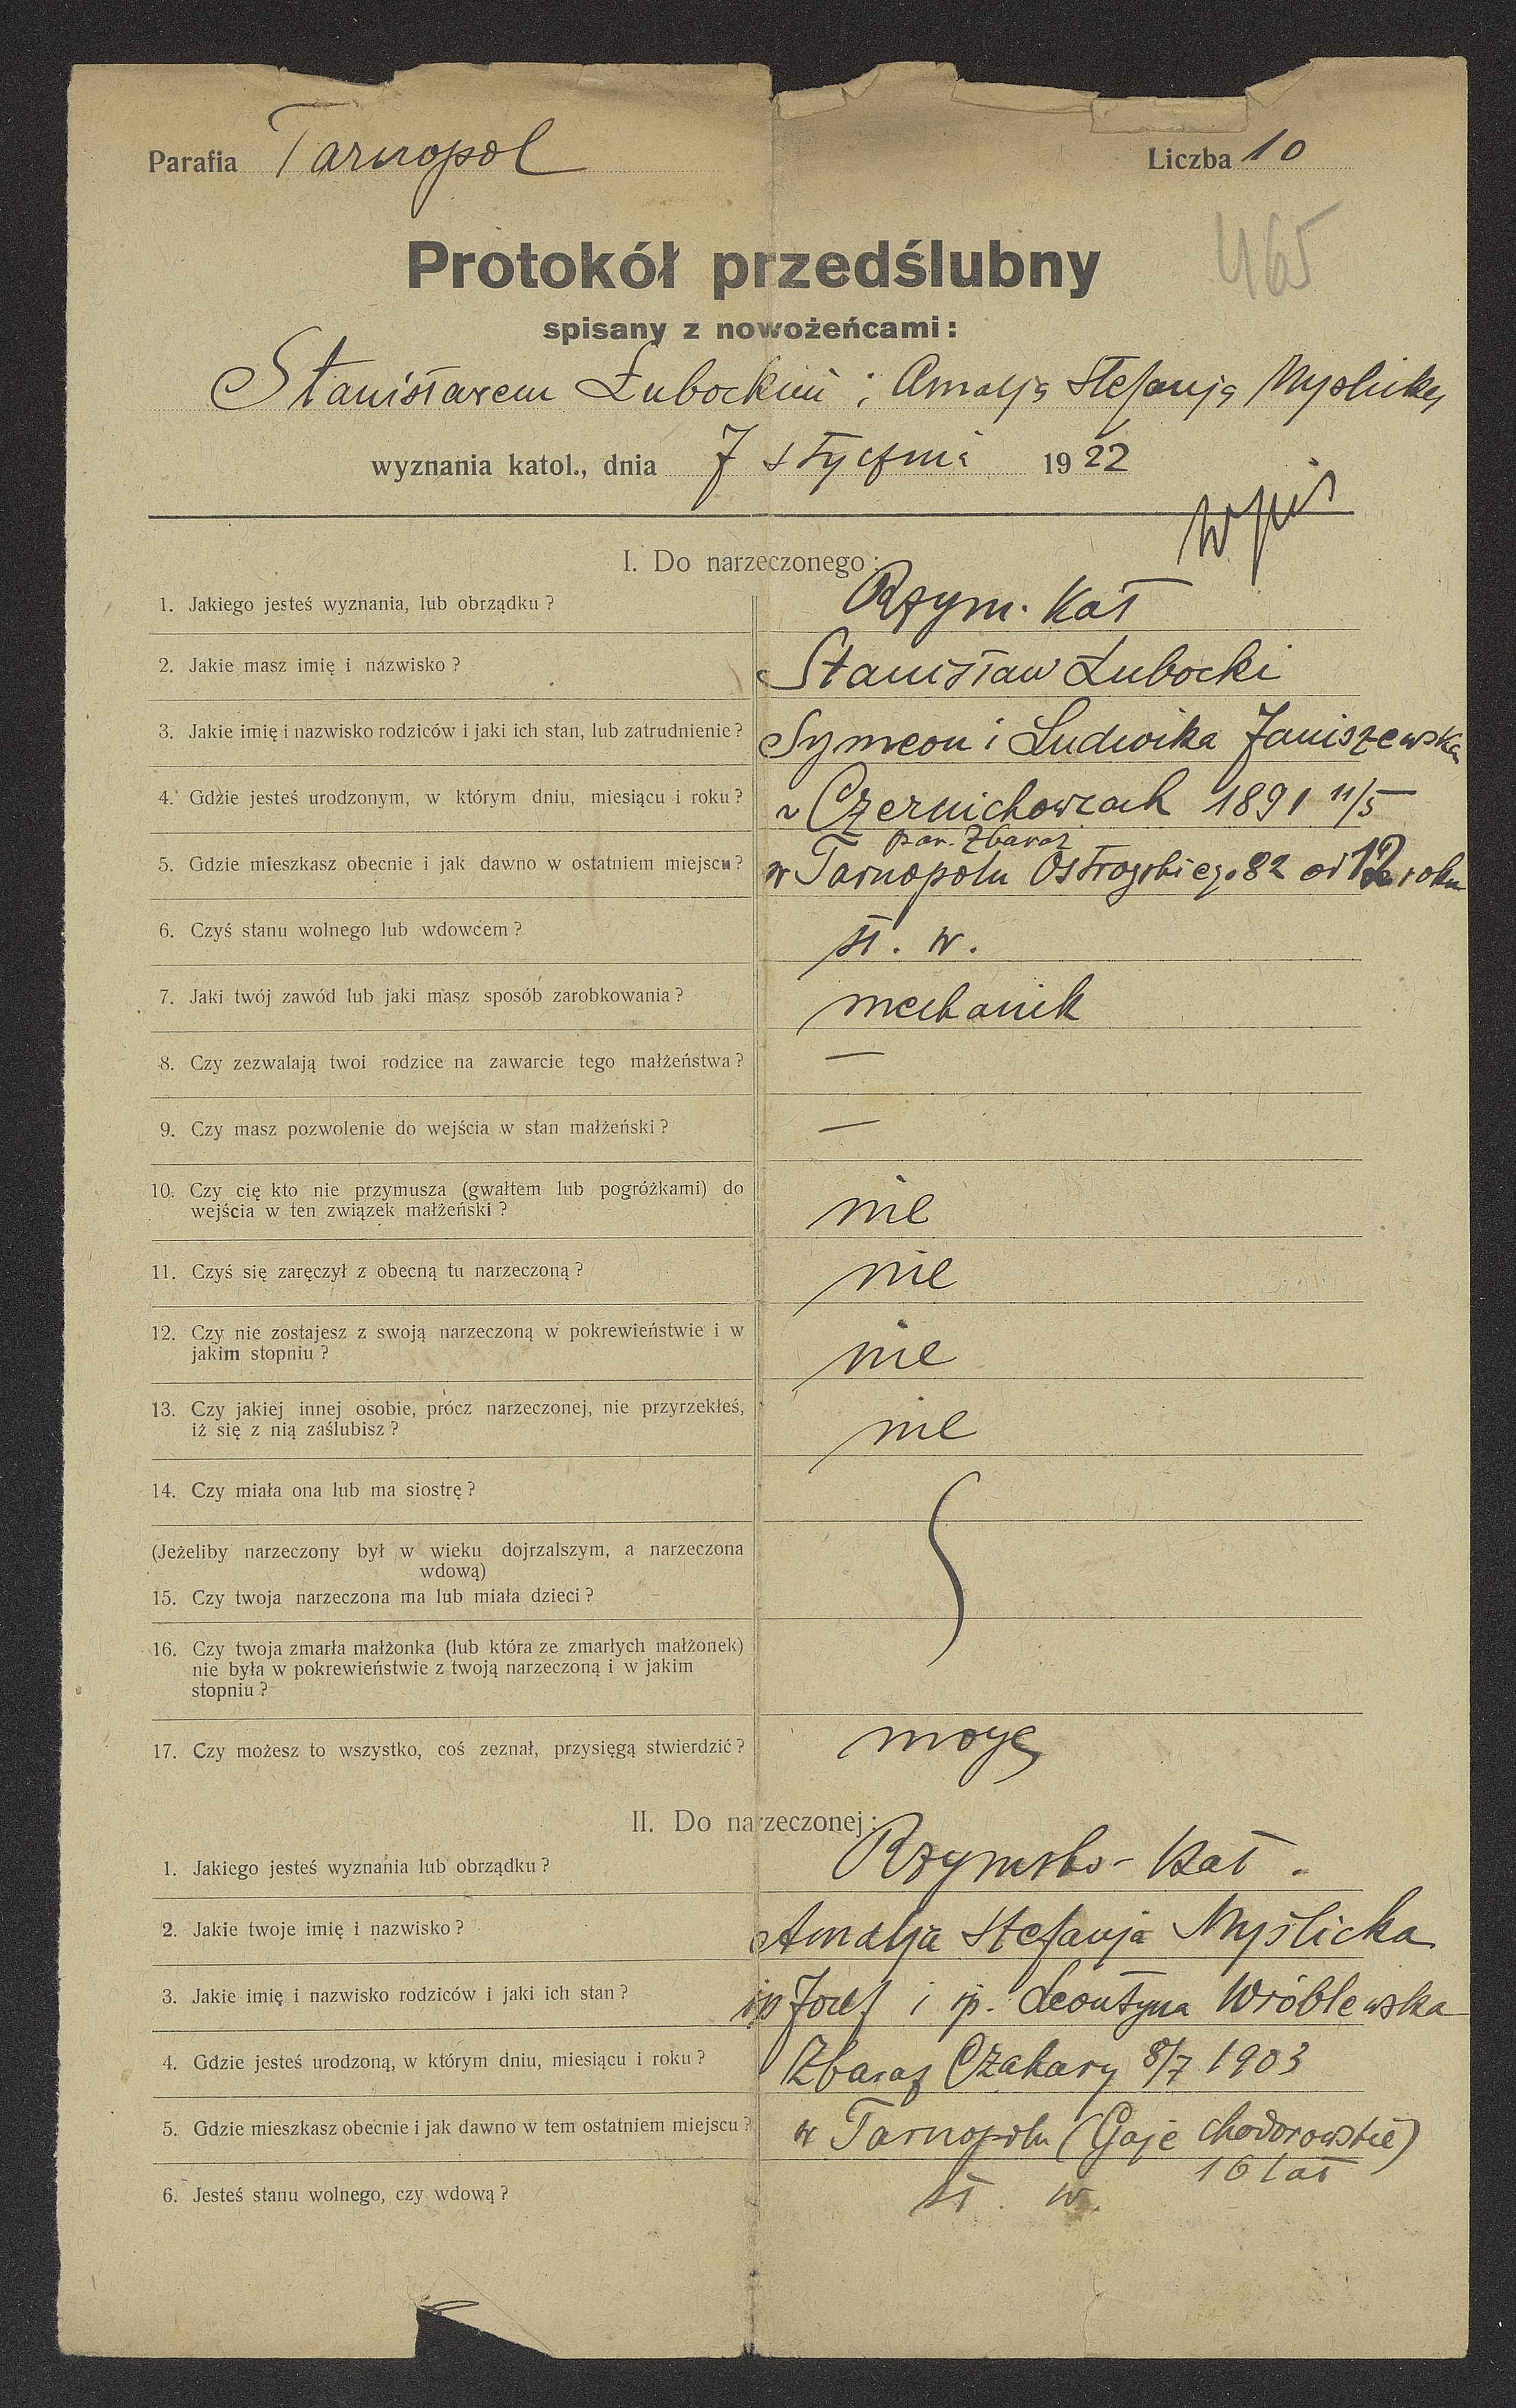 Parafia Tarnopol Liczba 10
465
Protokół przedślubny
spisany z nowożeńcami:
Stanisławem Łubockim i Amalją Stefanją Myślicką
wyznania katol., dnia 7 stycznia 1922
wpis
I. Do narzeczonego:
1. Jakiego jesteś wyznania, lub obrządku? Rzym. Kat
2. Jakie masz imię i nazwisko? Stanisław Łubocki
3. Jakie imię i nazwisko rodziców i jaki ich stan, lub zatrudnienie? Symeon i Ludwika Janiszewska
4. Gdzie jesteś urodzonym, w którym dniu, miesiącu i roku? w Czernichowcach 1891 11/5
par. Zbaraż
5. Gdzie mieszkasz obecnie i jak dawno w ostatniem miejscu? w Tarnopolu Ostrogskiego 82 od 12 roku
6. Czyś stanu wolnego lub wdowcem? st. w.
7. Jaki twój zawód lub jaki masz sposób zarobkowania? mechanik
8. Czy zezwalają twoi rodzice na zawarcie tego małżeństwa? —
9. Czy masz pozwolenie do wejścia w stan małżeński? —
10. Czy cię kto nie przymusza (gwałtem lub pogróżkami) do
wejścia w ten związek małżeński? nie
11. Czyś się zaręczył z obecną tu narzeczoną? nie
12. Czy nie zostajesz z swoją narzeczoną w pokrewieństwie i w
jakim stopniu? nie
13. Czy jakiej innej osobie, prócz narzeczonej, nie przyrzekłeś,
iż się z nią zaślubisz? nie
14. Czy miała ona lub ma siostrę?
(Jeżeliby narzeczony był w wieku dojrzalszym, a narzeczona
wdową)
15. Czy twoja narzeczona ma lub miała dzieci?
16. Czy twoja zmarła małżonka (lub która ze zmarłych małżonek)
nie była w pokrewieństwie z twoją narzeczoną i w jakim
stopniu?
17. Czy możesz to wszystko, coś zeznał, przysięgą stwierdzić? mogę
II. Do narzeczonej:
1. Jakiego jesteś wyznania lub obrządku? Rzymsko-Kat.
2. Jakie twoje imię i nazwisko? Amalja Stefanja Myślicka
3. Jakie imię i nazwisko rodziców i jaki ich stan? śp Józef i śp. Leontyna Wróblewska
4. Gdzie jesteś urodzoną, w którym dniu, miesiącu i roku? Zbaraż Czahary 8/7 1903
5. Gdzie mieszkasz obecnie i jak dawno w tem ostatniem miejscu? w Tarnopolu (Gaje chodorowskie)
16 lat
6. Jesteś stanu wolnego, czy wdową? st. w.